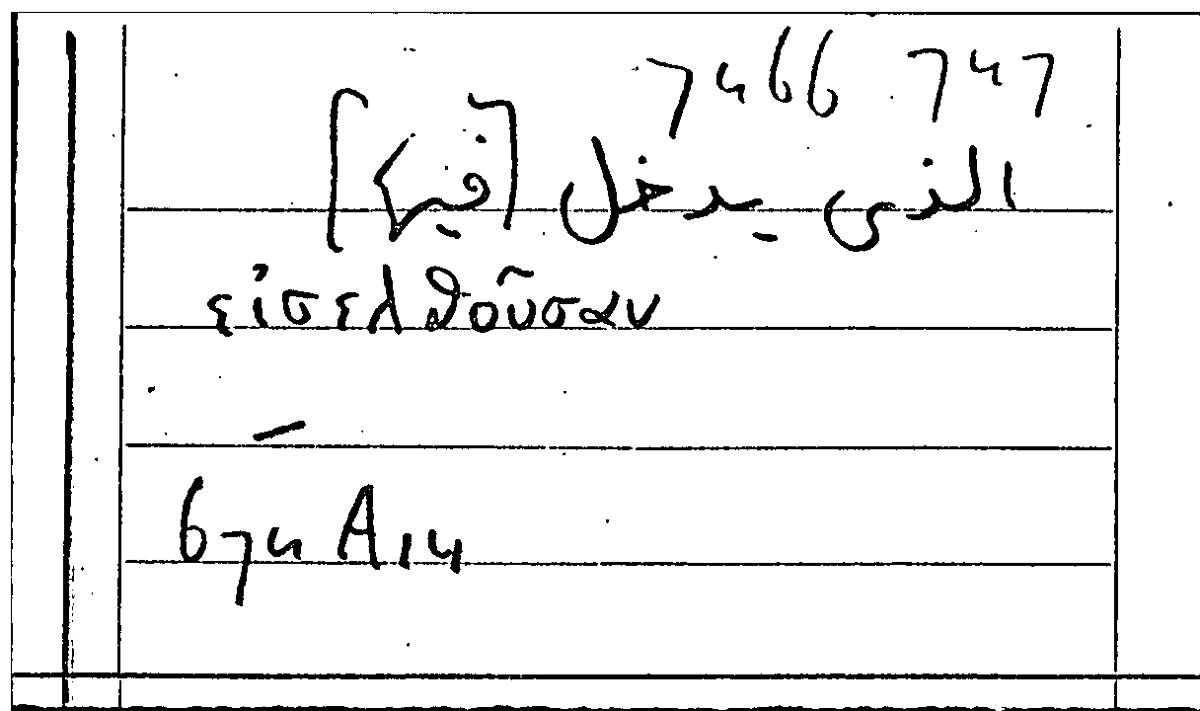 7466 747
الذى يدخل [فيها]
εἰσελθοῦσαν
674 A14